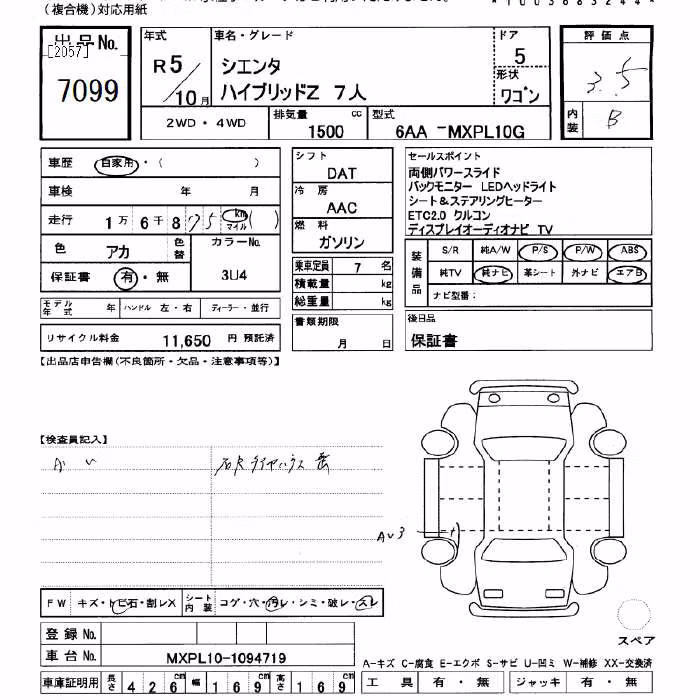 (複合機)対応用紙
*1003683244*
出品No.
[2057]
7099
年式
R5/10月
車名・グレード
シエンタ
ハイブリッドZ 7人
ドア
5
形状
ワゴン
評価点
3.5
内装
B
2WD・4WD
排気量 1500 cc
型式 6AA -MXPL10G
車歴 自家用・( )
車検 年 月
走行 1万6千875 km マイル ( )
色 アカ 色替
カラーNo. 3U4
保証書 有・無
シフト
DAT
冷房
AAC
燃料
ガソリン
乗車定員 7 名
積載量 kg
総重量 kg
書類期限
月 日
セールスポイント
両側パワースライド
バックモニター LEDヘッドライト
シート&ステアリングヒーター
ETC2.0 クルコン
ディスプレイオーディオナビ TV
装備品
S/R 純A/W P/S P/W ABS
純TV 純ナビ 革シート 外ナビ エアB
ナビ型番:
モデル年式 年 ハンドル 左・右 ディーラー・並行
リサイクル料金 11,650 円 預託済
後日品
保証書
【出品店申告欄(不良箇所・欠品・注意事項等)】
【検査員記入】
AV3
FW キズ・トビ石・割レX シート内装 コゲ・穴・汚レ・シミ・破レ・スレ
登録No.
車台No. MXPL10-1094719
スペア
A-キズ C-腐食 E-エクボ S-サビ U-凹ミ W-補修 XX-交換済
車庫証明用 長さ 426cm 幅 169cm 高さ 169cm
工具 有・無 ジャッキ 有・無